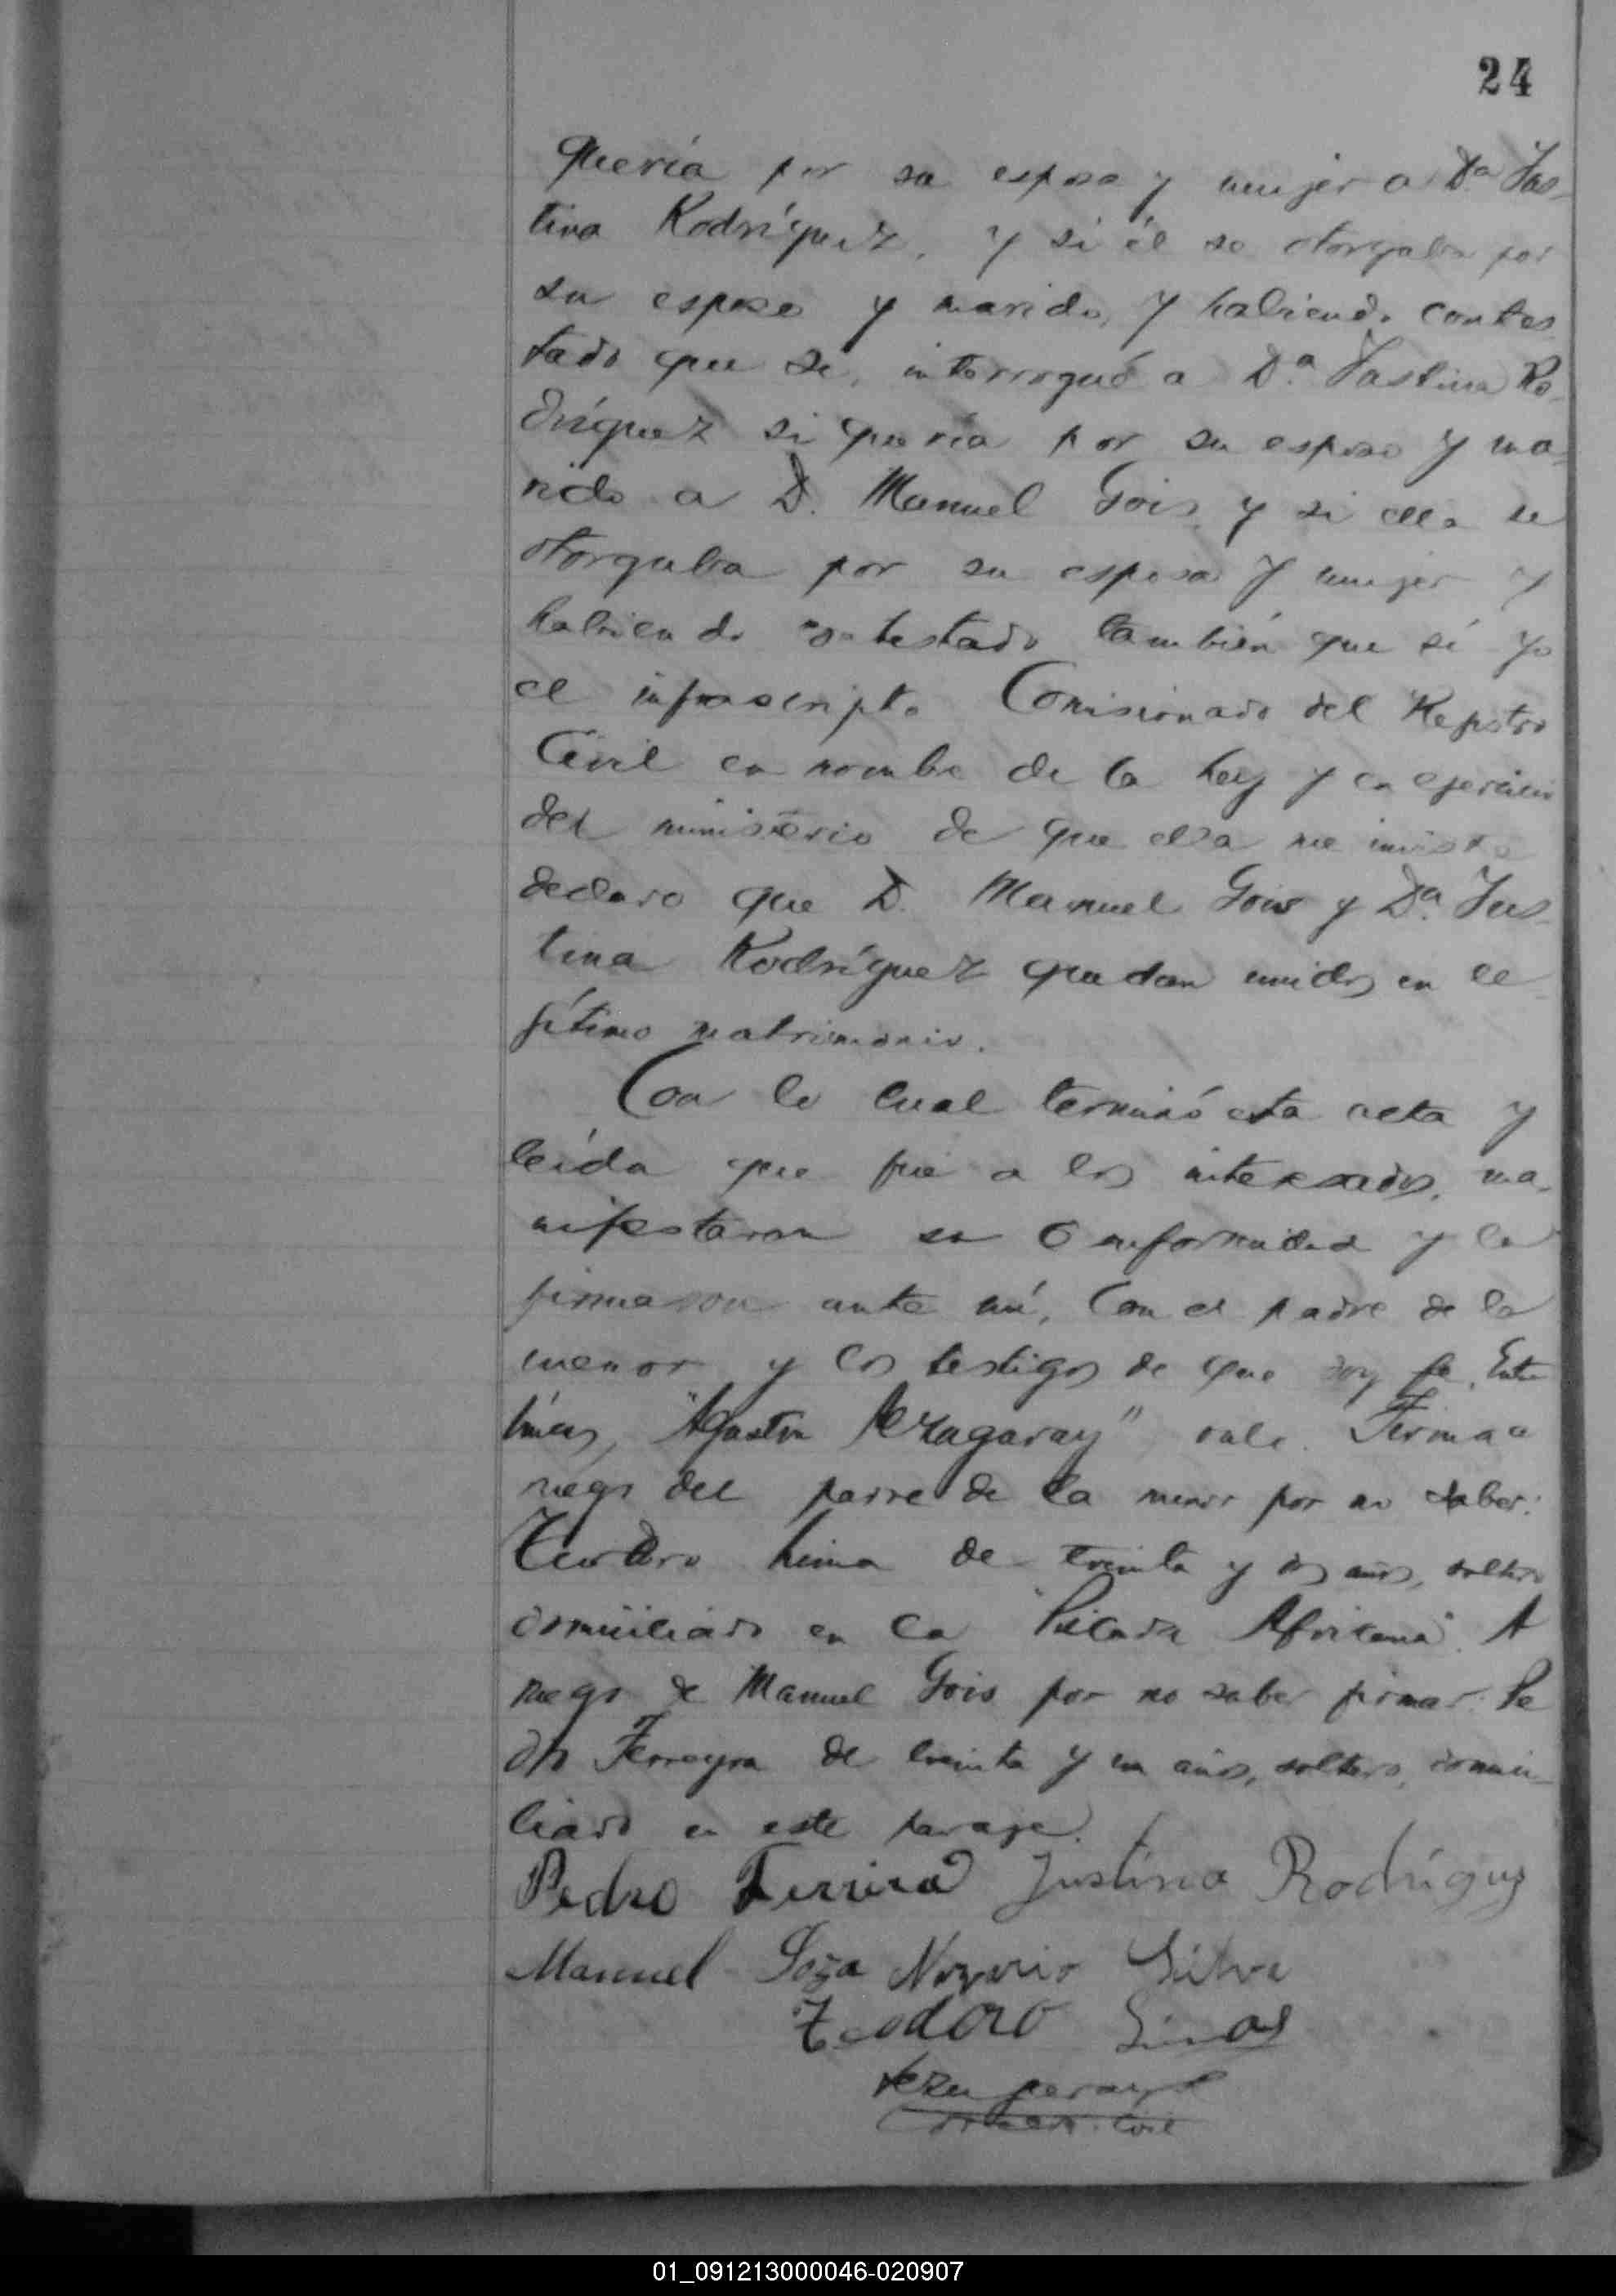 24
quería por su esposa y mujer a Dª Jus-
tina Rodríguez, y si él se otorgaba por
su esposo y marido, y habiendo contes
tado que sí, interrogué a Dª. Justina Ro-
dríguez si quería por su esposo y ma-
rido a D. Manuel Gois y si ella se
otorgaba por su esposa y mujer y
habiendo contestado también que sí yo
el infrascripto Comisionado del Registro
Civil en nombre de la Ley y en ejercicio
del ministerio de que ella me inviste
declaro que D. Manuel Gois y Dª. Jus-
tina Rodríguez quedan unidos en le-
gítimo matrimonio.
Con lo cual terminó esta acta y
leída que fué a los interesados, ma-
nifestaron su conformidad y la
firmaron ante mí, con el padre de la
menor y los testigos de que doy fe. Entre
líneas, "Agustín" vale. Firma a
ruego del padre de la menor por no saber:
Teodoro Lima de treinta y dos años, soltero
domiciliado en la "Picada Africana". A
ruego de Manuel Gois por no saber firmar: Pe
dro Ferreyra de treinta y un años, soltero, domici-
liado en este paraje.
Pedro Ferreira Justina Rodríguz
Manuel Soza Silva
Teodoro
01_091213000046-020907